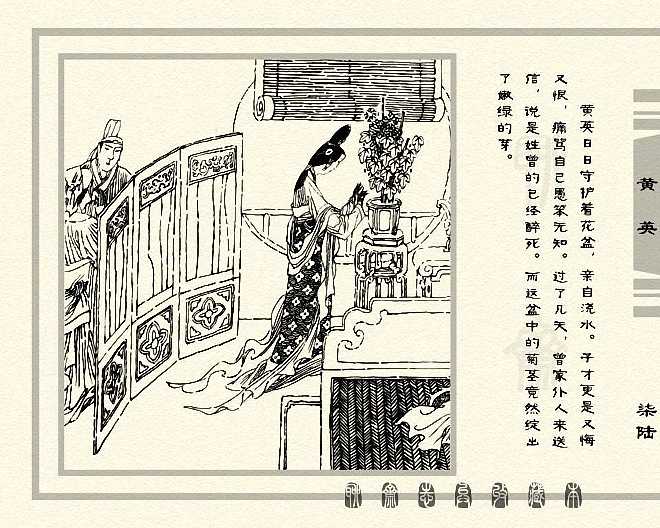 黄英
柒陆
黄英日日守护着花盆，亲自浇水。子才更是又悔
又恨，痛骂自己愚笨无知。过了几天，曾家仆人来送
信，说是姓曾的已经醉死。而这盆中的菊茎竟然绽出
了嫩绿的芽。